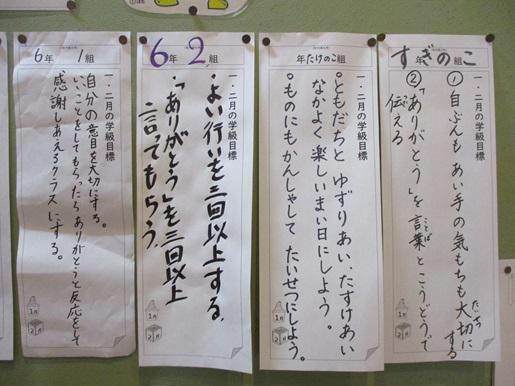 すぎのこ組
一・二月の学級目標
① 自ぶんも あい手の気もちも大切に
たいせつ
する
②「ありがとう」を言葉とこうどうで
ことば
伝える
年たけのこ組
一・二月の学級目標
ともだちと ゆずりあい・たすけあい
なかよく 楽しいまい日にしよう。
ものにもかんしゃして たいせつにしよう。
6年2組
一・二月の学級目標
・よい行いを三回以上する。
・「ありがとう」を三回以上
言ってもらう。
6年1組
一・二月の学級目標
自分の意見を大切にする。
いいことをしてもらったら、ありがとうと反応をして
感謝しあえるクラスにする。
1月
2月
1月
2月
1月
2月
1月
2月